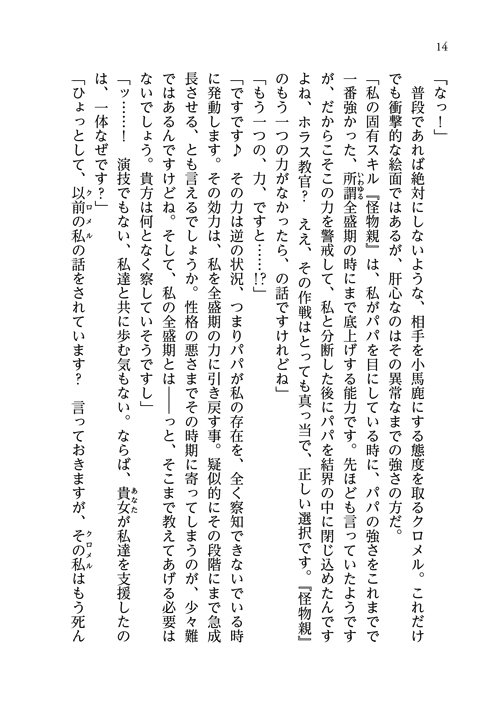 14
「なっ！」
　普段であれば絶対にしないような、相手を小馬鹿にする態度を取るクロメル。これだけ
でも衝撃的な絵面ではあるが、肝心なのはその異常なまでの強さの方だ。
「私の固有スキル『怪物親』は、私がパパを目にしている時に、パパの強さをこれまでで
一番強かった、所謂全盛期の時にまで底上げする能力です。先ほども言っていたようです
が、だからこそこの力を警戒して、私と分断した後にパパを結界の中に閉じ込めたんです
よね、ホラス教官？　ええ、その作戦はとっても真っ当で、正しい選択です。『怪物親』
のもう一つの力がなかったら、の話ですけれどね」
「もう一つの、力、ですと……!?」
「ですです♪　その力は逆の状況、つまりパパが私の存在を、全く察知できないでいる時
に発動します。その効力は、私を全盛期の力に引き戻す事。疑似的にその段階にまで急成
長させる、とも言えるでしょうか。性格の悪さまでその時期に寄ってしまうのが、少々難
ではあるんですけどね。そして、私の全盛期とは――っと、そこまで教えてあげる必要は
ないでしょう。貴方は何となく察していそうですし」
「ッ……！　演技でもない、私達と共に歩む気もない。ならば、貴女が私達を支援したの
は、一体なぜです？」
「ひょっとして、以前の私の話をされています？　言っておきますが、その私はもう死ん
いわゆる
あなた
クロメル
クロメル